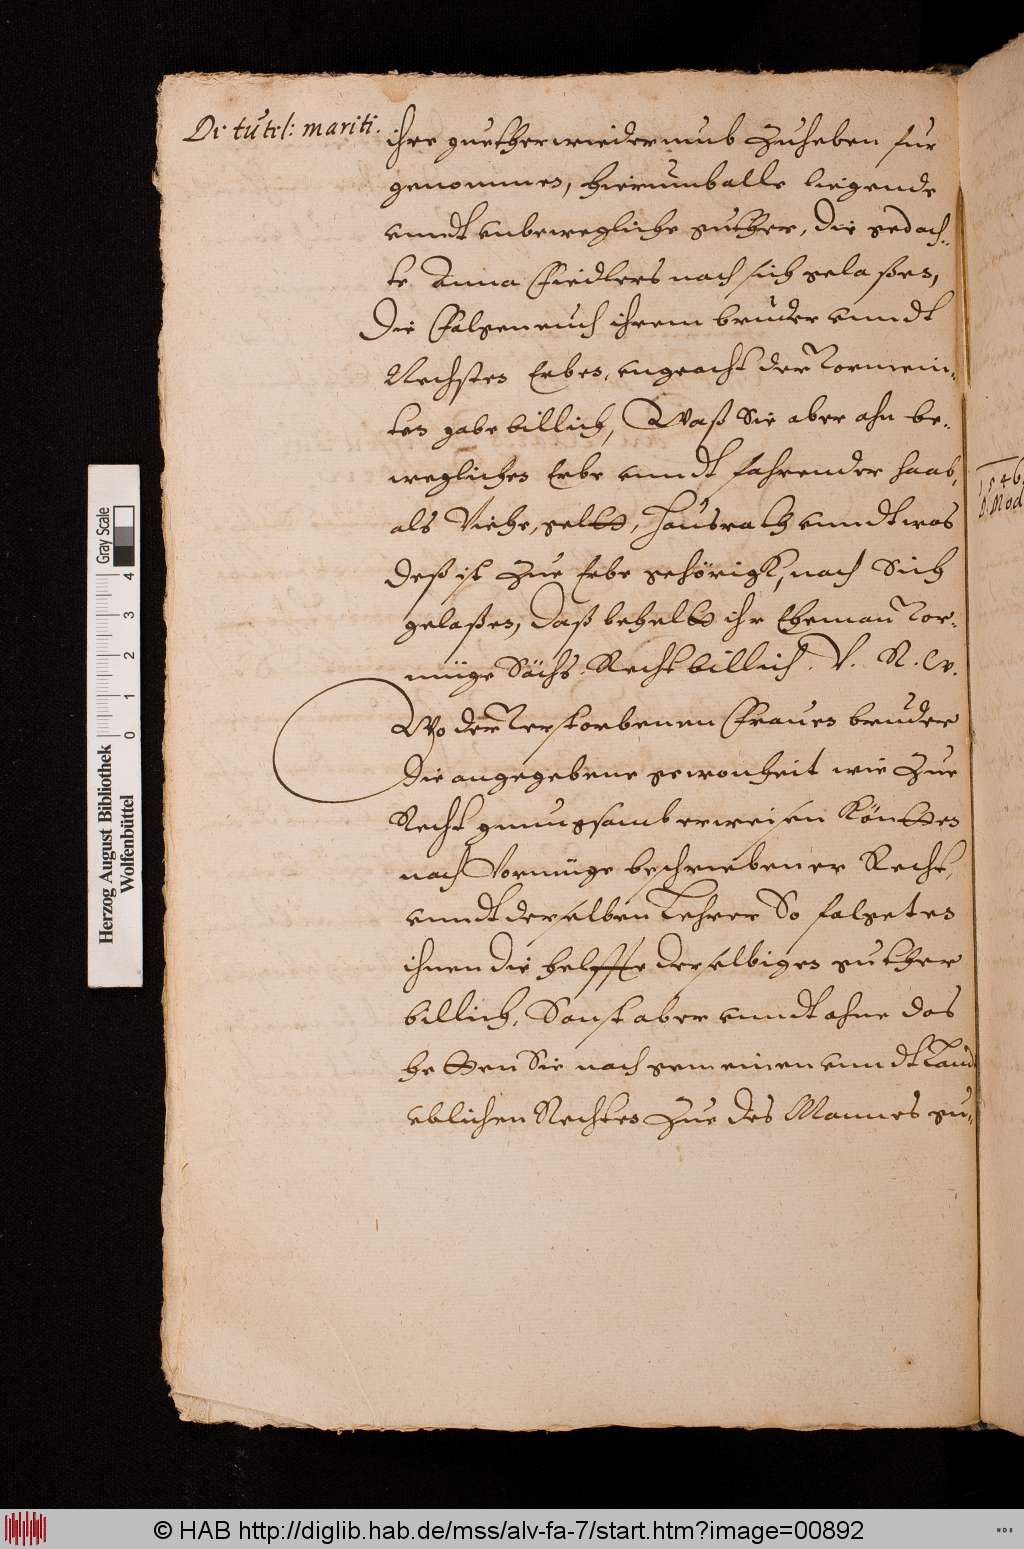 De tutel: mariti.
ihre guether wiederumb Zuheben fur
genommen, hierumb alle liegende
vnndt vnbewegliche guther, die gedach-
te Anna Fiedlers nach sich gelaßen,
die Falgen euch ihrem bruder vnndt
Nechsten Erben, vngeacht der vormein-
ten gabe billich, Waß Sie aber ahn be-
weglichen Erbe vnndt fahrender haab,
als Viehe, geltt, Hausrath vnndt was
deß ist Zue Erbe gehörigk, nach Sich
gelaßen, daß behelt ihr Eheman vor-
müge Sächs. Recht billich. V. R. W.
Wo der verstorbenen Frauen bruder
die angegebene gewonheit wie Zue
Recht gnungsamb erweisen Köntten
nach Vormüge beschriebener Recht,
vnndt derselben Lehrer So falget es
ihnen die helffte derselbigen guther
billich, Sonst aber vnndt ahne das
hetten Sie nach gemeinen vnndt Land
vblichen Rechten Zue des Mannes gu-
1546
D. Mod
Herzog August Bibliothek
Wolfenbüttel
0 1 2 3 4
Gray Scale
© HAB http://diglib.hab.de/mss/alv-fa-7/start.htm?image=00892